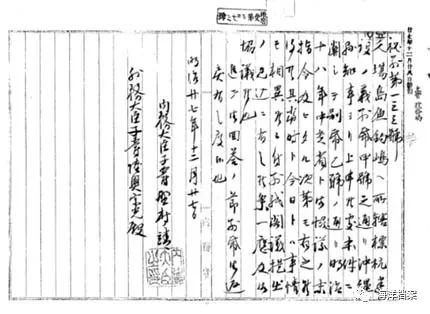 秘別第一三三號
久場島魚釣島ヘ所轄標杭建
設之義別紙甲號之通リ沖縄縣
知事ヨリ上申候處本件ニ
関シテハ別紙乙號ノ通リ明治
十八年中貴省ト御協議ノ末
指令及ヒタル次第モ有之候
得共其當時ト今日トハ事情
モ相異候ニ付別紙閣議提出
ノ見込ニ有之候條一應及御
協議候也
追テ御回答ノ節ハ別紙御返
戻有之度候也
明治廿七年十二月廿七日
内務大臣子爵野村靖
外務大臣子爵陸奥宗光殿
海洋档案